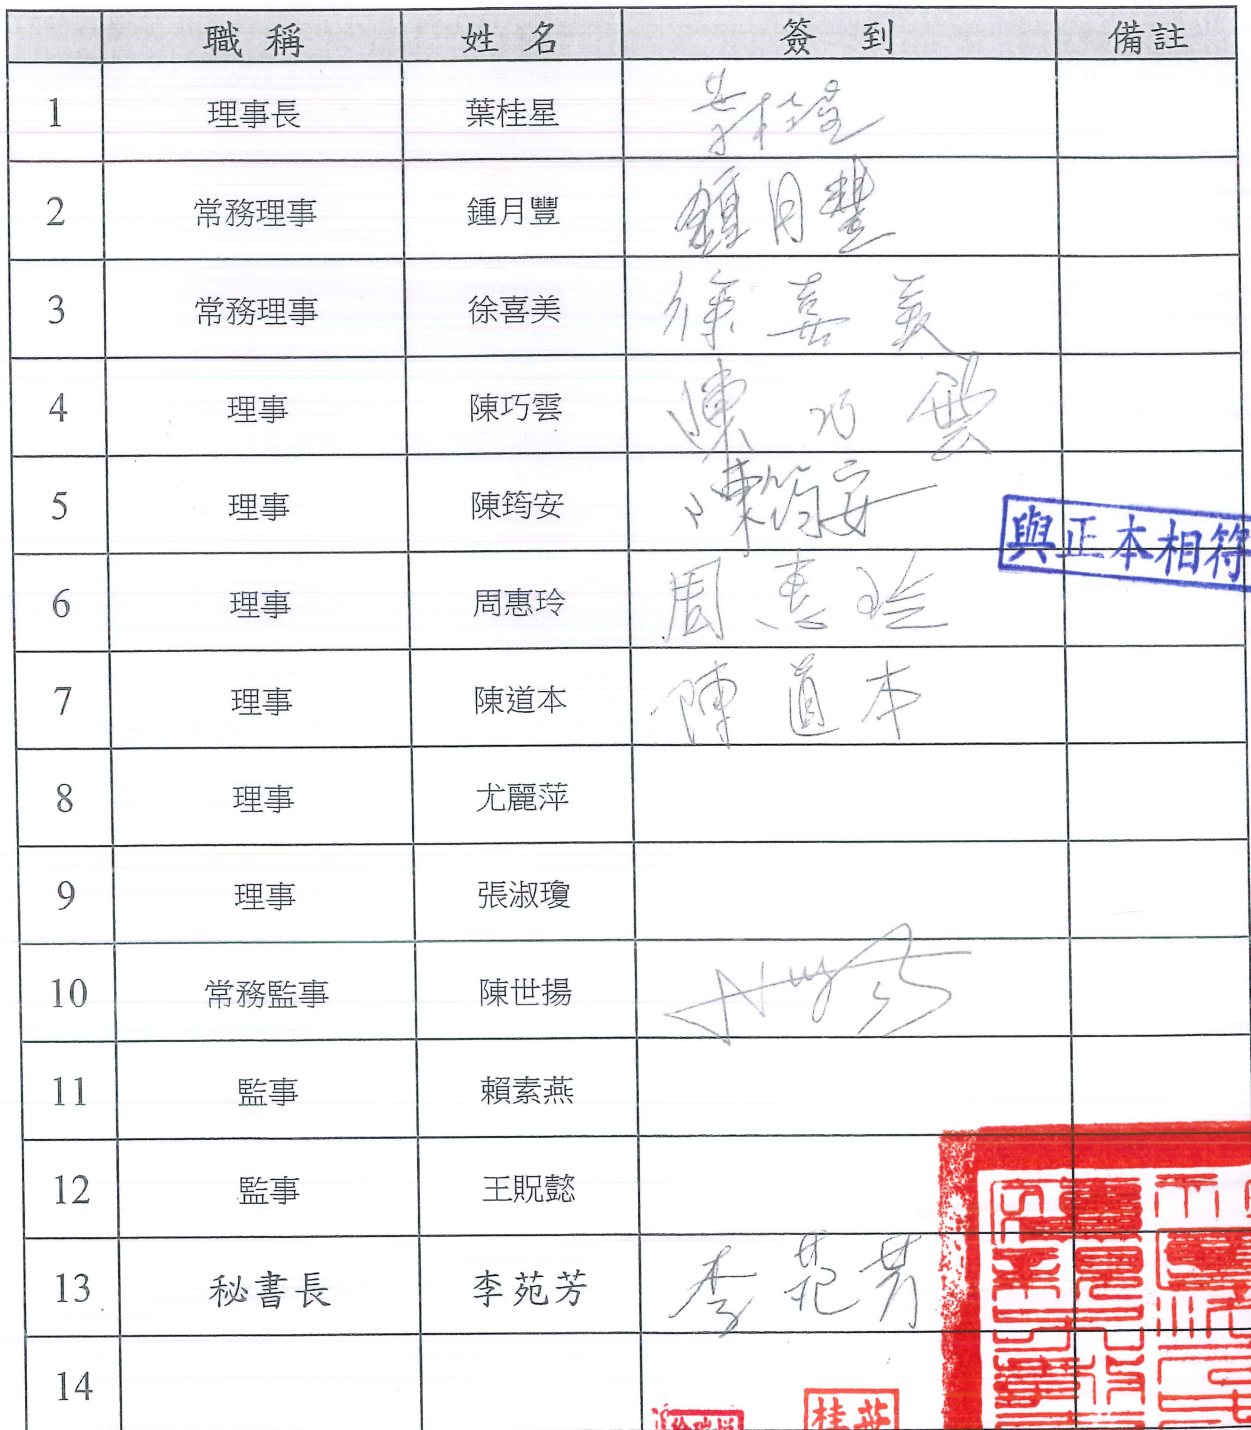 職稱 姓名 簽到 備註
1 理事長 葉桂星 葉桂星
2 常務理事 鍾月豐 鍾月豐
3 常務理事 徐喜美 徐喜美
4 理事 陳巧雲 陳巧雲
5 理事 陳筠安 陳筠安
與正本相符
6 理事 周惠玲 周惠玲
7 理事 陳道本 陳道本
8 理事 尤麗萍
9 理事 張淑瓊
10 常務監事 陳世揚
11 監事 賴素燕
12 監事 王貺懿
13 秘書長 李苑芳 李苑芳
14
桂葉